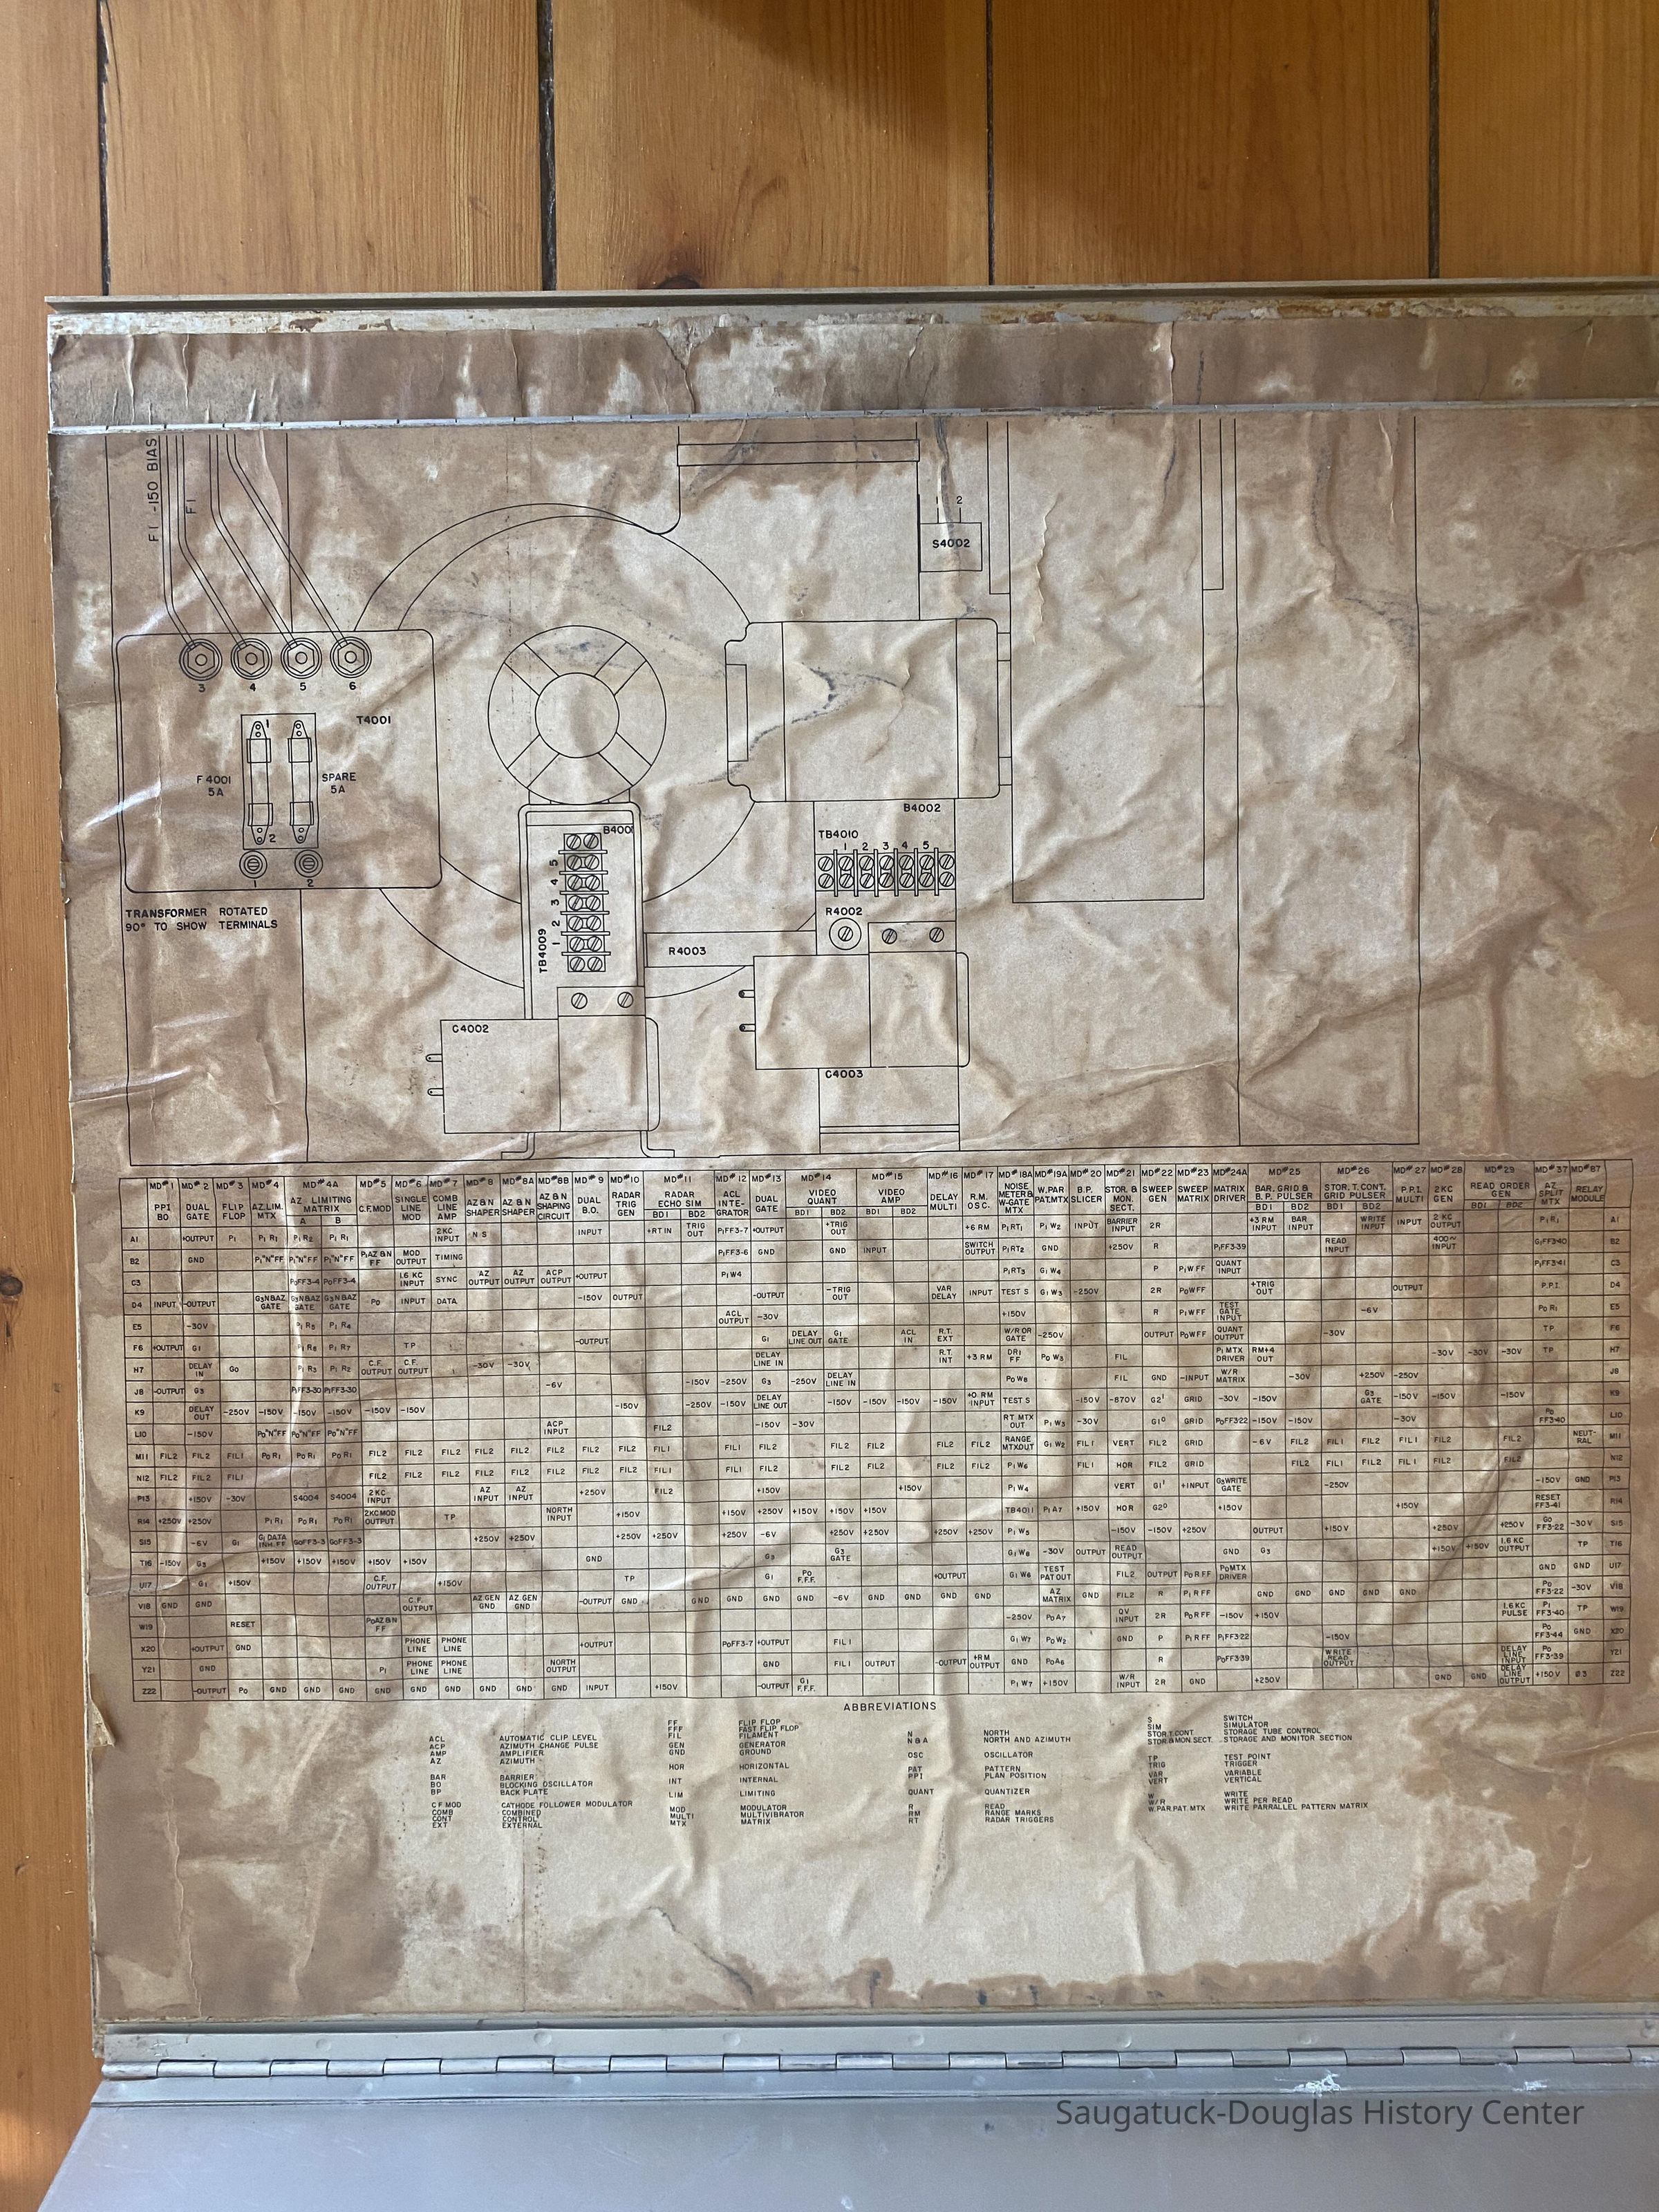 F1 -150 BIAS
F1
1 2
S4002
3 4 5 6
T4001
1
F4001
5A
SPARE
5A
2
1 2
B4002
B4001
TB4010
1 2 3 4 5
TRANSFORMER ROTATED
90° TO SHOW TERMINALS
TB4009
1 2 3 4 5
R4002
R4003
C4002
C4003
MD#1 MD#2 MD#3 MD#4 MD#4A MD#5 MD#6 MD#7 MD#8 MD#8A MD#8B MD#9 MD#10 MD#11 MD#12 MD#13 MD#14 MD#15 MD#16 MD#17 MD#18A MD#19A MD#20 MD#21 MD#22 MD#23 MD#24A MD#25 MD#26 MD#27 MD#28 MD#29 MD#37 MD#87
PPI BO DUAL GATE FLIP FLOP AZ.LIM. MTX AZ - LIMITING MATRIX A B C.F.MOD SINGLE LINE MOD COMB LINE AMP AZ & N SHAPER AZ & N SHAPER AZ & N SHAPING CIRCUIT DUAL B.O. RADAR TRIG GEN RADAR ECHO SIM BD1 BD2 ACL INTE-GRATOR DUAL GATE VIDEO QUANT BD1 BD2 VIDEO AMP BD1 BD2 DELAY MULTI R.M. OSC. NOISE METER & W-GATE MTX W.PAR PAT.MTX B.P. SLICER STOR. & MON. SECT. SWEEP GEN SWEEP MATRIX MATRIX DRIVER BAR, GRID & B.P. PULSER BD1 BD2 STOR. T. CONT. GRID PULSER BD1 BD2 P.P.I. MULTI 2KC GEN READ ORDER GEN BD1 BD2 AZ SPLIT MTX RELAY MODULE
A1 +OUTPUT P1 P1 R1 P1 R2 P1 R1 2KC INPUT N S INPUT +RT IN TRIG OUT P1FF3-7 +OUTPUT +TRIG OUT +6 RM P1RT1 P1 W2 INPUT BARRIER INPUT 2R +3 RM INPUT BAR INPUT WRITE INPUT INPUT 2 KC OUTPUT P1 R1 A1
B2 GND P1"N"FF P1"N"FF P1"N"FF P1AZ & N FF MOD OUTPUT TIMING P1FF3-6 GND GND INPUT SWITCH OUTPUT P1RT2 GND +250V R P1FF3-39 READ INPUT 400~ INPUT G1FF3-40 B2
C3 P0FF3-4 P0FF3-4 1.6 KC INPUT SYNC AZ OUTPUT AZ OUTPUT ACP OUTPUT +OUTPUT P1W4 P1RT3 G1 W4 P P1WFF QUANT INPUT P1FF3-41 C3
D4 INPUT -OUTPUT G3N&AZ GATE G3N&AZ GATE G3N&AZ GATE P0 INPUT DATA -150V OUTPUT -OUTPUT -TRIG OUT VAR DELAY INPUT TEST S G1 W3 -250V 2R P0WFF +TRIG OUT OUTPUT P.P.I. D4
E5 -30V P1 R5 P1 R4 ACL OUTPUT -30V +150V R P1WFF TEST GATE INPUT -6V P0 R1 E5
F6 +OUTPUT G1 P1 R6 P1 R7 TP -OUTPUT G1 DELAY LINE OUT G1 GATE ACL IN R.T. EXT W/R OR GATE -250V OUTPUT P0WFF QUANT OUTPUT -30V TP F6
H7 DELAY IN G0 P1 R3 P1 R2 C.F. OUTPUT C.F. OUTPUT -30V -30V DELAY LINE IN R.T. INT +3 RM DR1 FF P0 W3 FIL P1 MTX DRIVER RM+4 OUT -30V -30V -30V TP H7
J8 -OUTPUT G3 P1FF3-30 P1FF3-30 -6V -150V -250V G3 -250V DELAY LINE IN P0W8 FIL GND -INPUT W/R MATRIX -30V +250V -250V J8
K9 DELAY OUT -250V -150V -150V -150V -150V -150V -150V -250V -150V DELAY LINE OUT -150V -150V -150V -150V +0 RM INPUT TEST S -150V -870V G2¹ GRID -30V -150V G3 GATE -150V -150V -150V K9
L10 -150V P0"N"FF P0"N"FF P0"N"FF ACP INPUT FIL2 -150V -30V RT MTX OUT P1 W3 -30V G1⁰ GRID P0FF3-22 -150V -150V -30V P0 FF3-40 L10
M11 FIL2 FIL2 FIL1 P0 R1 P0 R1 P0 R1 FIL2 FIL2 FIL2 FIL2 FIL2 FIL2 FIL2 FIL2 FIL1 FIL1 FIL2 FIL2 FIL2 FIL2 FIL2 RANGE MTXOUT G1 W2 FIL1 VERT FIL2 GRID -6V FIL2 FIL1 FIL2 FIL1 FIL2 FIL2 NEUT-RAL M11
N12 FIL2 FIL2 FIL1 FIL2 FIL2 FIL2 FIL2 FIL2 FIL2 FIL2 FIL2 FIL1 FIL1 FIL2 FIL2 FIL2 FIL2 FIL2 P1W6 FIL1 HOR FIL2 GRID FIL2 FIL1 FIL2 FIL1 FIL2 FIL2 N12
P13 +150V -30V S4004 S4004 2 KC INPUT AZ INPUT AZ INPUT +250V FIL2 +150V +150V P1W4 VERT G1¹ +INPUT G3WRITE GATE -250V -150V GND P13
R14 +250V +250V P1 R1 P0 R1 P0 R1 2KCMOD OUTPUT TP NORTH INPUT +150V +150V +250V +150V +150V +150V TB4011 P1 A7 +150V HOR G2⁰ +150V +150V RESET FF3-41 R14
S15 -6V G1 G1 DATA INH.FF G0FF3-3 G0FF3-3 +250V +250V +250V +250V +250V -6V +250V +250V +250V +250V P1 W5 -150V -150V +250V OUTPUT +150V +250V +250V G0 FF3-22 -30V S15
T16 -150V G3 +150V +150V +150V +150V +150V GND G3 G3 GATE G1 W8 -30V OUTPUT READ OUTPUT GND G3 +150V +150V 1.6 KC OUTPUT TP T16
U17 G1 +150V C.F. OUTPUT +150V TP G1 P0 F.F.F. +OUTPUT G1 W6 TEST PAT OUT FIL2 OUTPUT P0RFF P0MTX DRIVER GND GND U17
V18 GND GND C.F. OUTPUT AZ.GEN GND AZ GEN GND -OUTPUT GND GND GND GND GND -6V GND GND GND GND AZ MATRIX GND FIL2 R P1RFF GND GND GND GND GND P0 FF3-22 -30V V18
W19 RESET P0AZ&N FF -250V P0A7 QV INPUT 2R P0RFF -150V +150V 1.6KC PULSE P1 FF3-40 TP W19
X20 +OUTPUT GND PHONE LINE PHONE LINE +OUTPUT P0FF3-7 +OUTPUT FIL1 G1 W7 P0W2 GND P P1RFF P1FF3-22 -150V P0 FF3-44 GND X20
Y21 GND P1 PHONE LINE PHONE LINE NORTH OUTPUT GND FIL1 OUTPUT -OUTPUT +RM OUTPUT GND P0A6 R P0FF3-39 WRITE READ OUTPUT DELAY LINE INPUT P0 FF3-39 Y21
Z22 -OUTPUT P0 GND GND GND GND GND GND GND GND GND INPUT +150V -OUTPUT G1 F.F.F. P1W7 +150V W/R INPUT 2R GND +250V GND GND DELAY LINE OUTPUT +150V Ø3 Z22
ABBREVIATIONS
ACL AUTOMATIC CLIP LEVEL
ACP AZIMUTH CHANGE PULSE
AMP AMPLIFIER
AZ AZIMUTH
BAR BARRIER
BO BLOCKING OSCILLATOR
BP BACK PLATE
C F MOD CATHODE FOLLOWER MODULATOR
COMB COMBINED
CONT CONTROL
EXT EXTERNAL
FF FLIP FLOP
FFF FAST FLIP FLOP
FIL FILAMENT
GEN GENERATOR
GND GROUND
HOR HORIZONTAL
INT INTERNAL
LIM LIMITING
MOD MODULATOR
MULTI MULTIVIBRATOR
MTX MATRIX
N NORTH
N & A NORTH AND AZIMUTH
OSC OSCILLATOR
PAT PATTERN
PPI PLAN POSITION
QUANT QUANTIZER
R READ
RM RANGE MARKS
RT RADAR TRIGGERS
S SWITCH
SIM SIMULATOR
STOR.T.CONT. STORAGE TUBE CONTROL
STOR & MON. SECT. STORAGE AND MONITOR SECTION
TP TEST POINT
TRIG TRIGGER
VAR VARIABLE
VERT VERTICAL
W WRITE
W/R WRITE PER READ
W.PAR.PAT. MTX WRITE PARRALLEL PATTERN MATRIX
Saugatuck-Douglas History Center